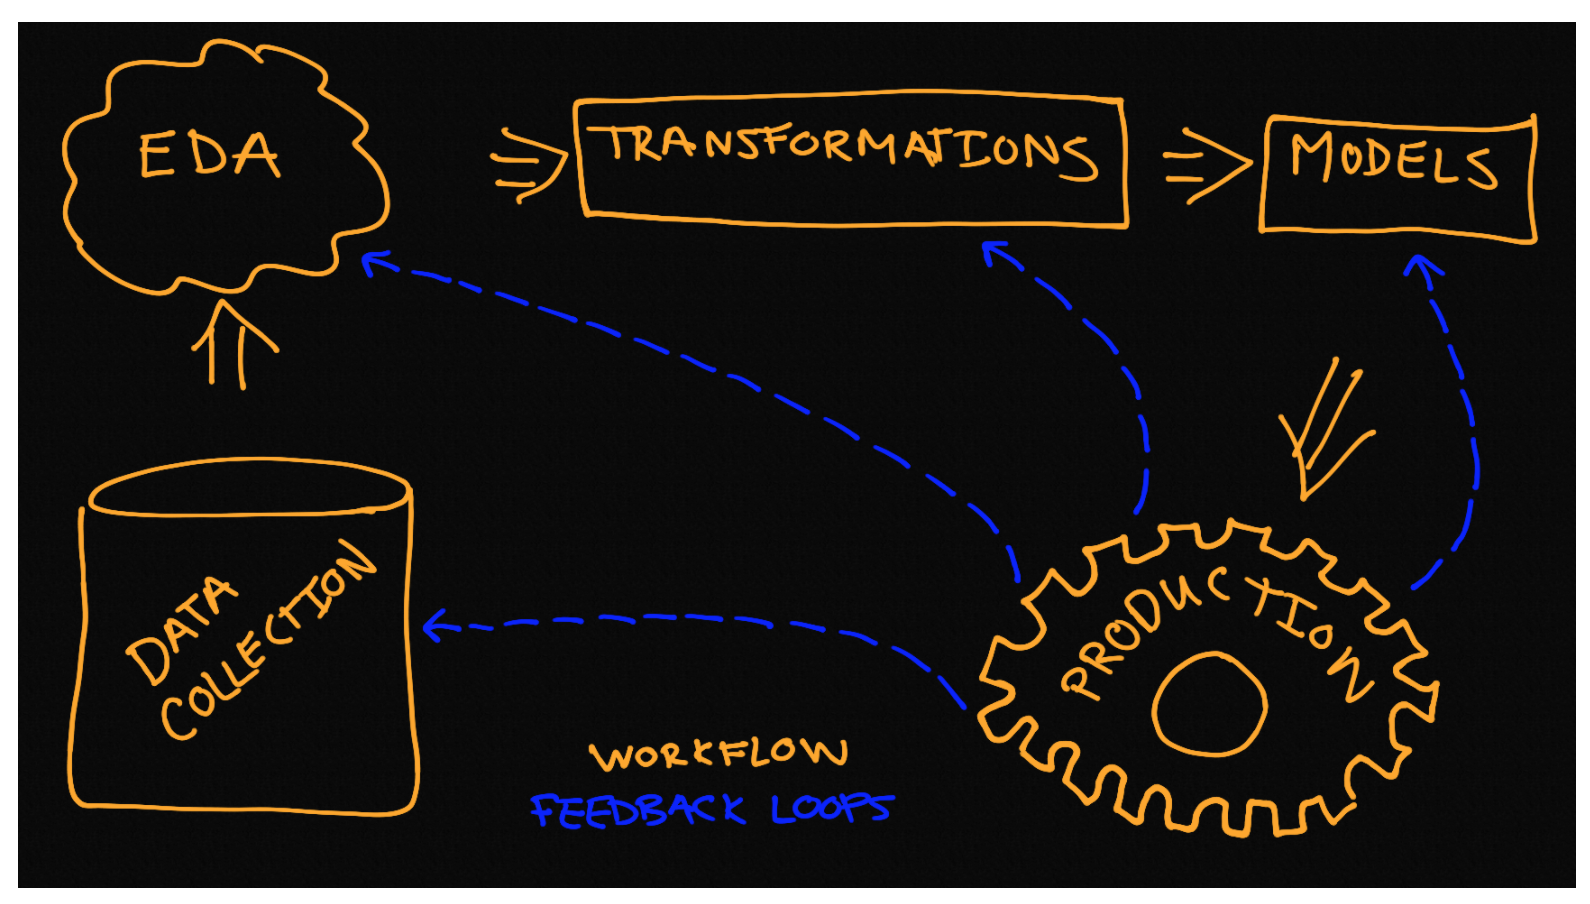 EDA
TRANSFORMATIONS
MODELS
DATA
COLLECTION
PRODUCTION
WORKFLOW
FEEDBACK LOOPS